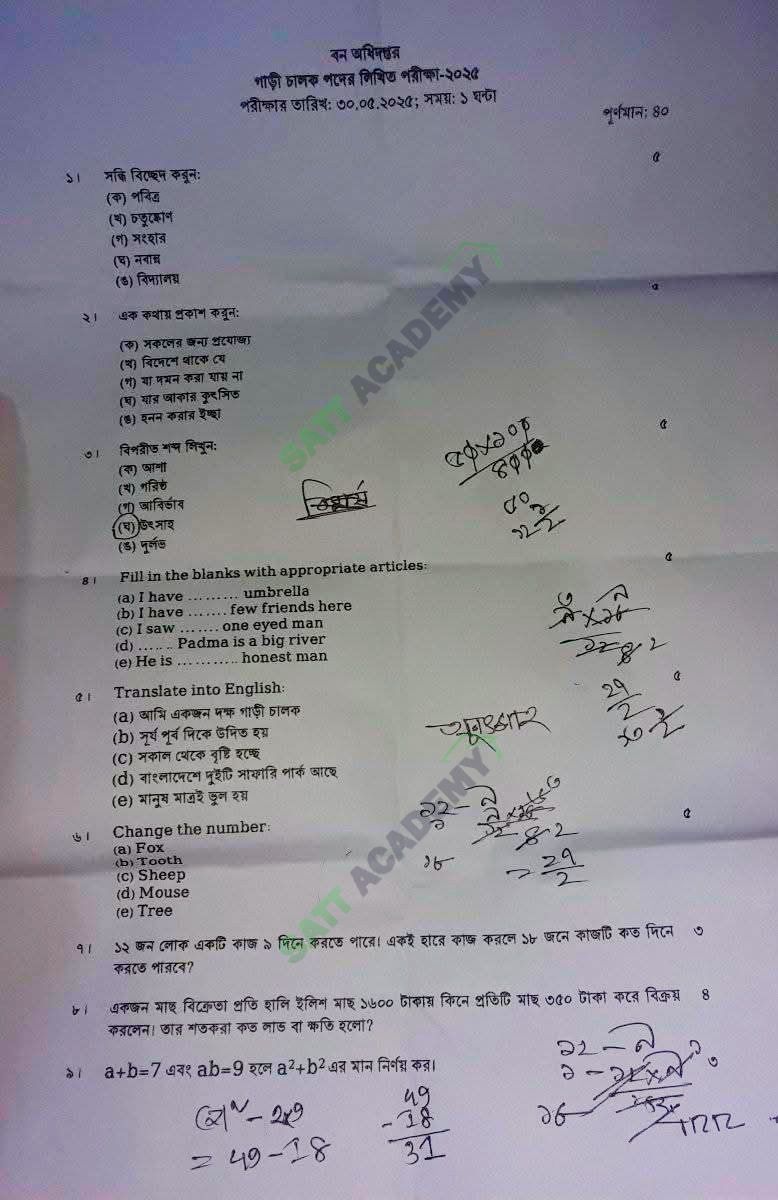 বন অধিদপ্তর
গাড়ী চালক পদের লিখিত পরীক্ষা-২০২৫
পরীক্ষার তারিখ: ৩০.০৫.২০২৫; সময়: ১ ঘন্টা
পূর্ণমান: ৪০
১। সন্ধি বিচ্ছেদ করুন: ৫
(ক) পবিত্র
(খ) চতুষ্কোণ
(গ) সংহার
(ঘ) নবান্ন
(ঙ) বিদ্যালয়
২। এক কথায় প্রকাশ করুন: ৫
(ক) সকলের জন্য প্রযোজ্য
(খ) বিদেশে থাকে যে
(গ) যা দমন করা যায় না
(ঘ) যার আকার কুৎসিত
(ঙ) হনন করার ইচ্ছা
৩। বিপরীত শব্দ লিখুন: ৫
(ক) আশা
(খ) গরিষ্ঠ
(গ) আবির্ভাব
(ঘ) উৎসাহ
(ঙ) দুর্লভ
৪। Fill in the blanks with appropriate articles: ৫
(a) I have ......... umbrella
(b) I have ....... few friends here
(c) I saw ....... one eyed man
(d) ....... Padma is a big river
(e) He is ........... honest man
৫। Translate into English: ৫
(a) আমি একজন দক্ষ গাড়ী চালক
(b) সূর্য পূর্ব দিকে উদিত হয়
(c) সকাল থেকে বৃষ্টি হচ্ছে
(d) বাংলাদেশে দুইটি সাফারি পার্ক আছে
(e) মানুষ মাত্রই ভুল হয়
৬। Change the number: ৫
(a) Fox
(b) Tooth
(c) Sheep
(d) Mouse
(e) Tree
৭। ১২ জন লোক একটি কাজ ৯ দিনে করতে পারে। একই হারে কাজ করলে ১৮ জনে কাজটি কত দিনে ৩
করতে পারবে?
৮। একজন মাছ বিক্রেতা প্রতি হালি ইলিশ মাছ ১৬০০ টাকায় কিনে প্রতিটি মাছ ৩৫০ টাকা করে বিক্রয় ৪
করলেন। তার শতকরা কত লাভ বা ক্ষতি হলো?
৯। a+b=7 এবং ab=9 হলে a²+b² এর মান নির্ণয় কর। ৩
= 49 - 18
49
- 18
31
SATT ACADEMY
SATT ACADEMY